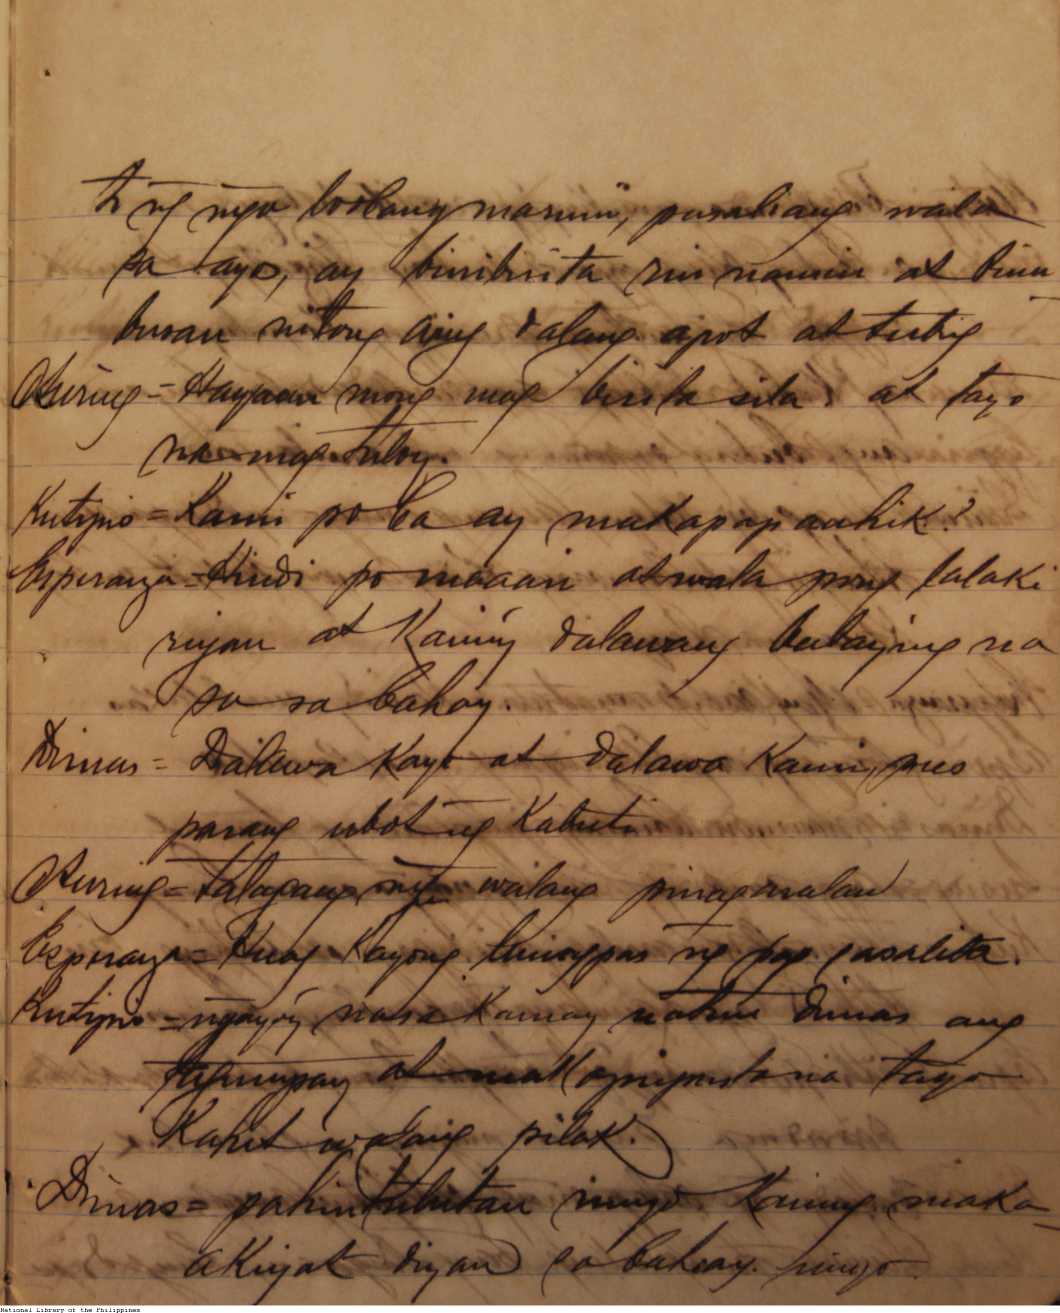 at ng mga loobang marumi, pusaliang wala
sa ayo, ay binibisita rin namin at binu
busan nitong aming dalang apot at tubig
Auring = Hayaan mong mag bisita sila; at tayo
na mag tuloy.
Kutipio = Kami po ba ay makapapanhik?
Esperanza = Hindi po maaari at wala pong lalaki
riyan at kaming dalawang babaying na
sa sa bahay.
Dimas = Dalawa kayo at dalawa kami, pues
parang ubot ng kabuti
Auring = Talagang mga walang pinagaralan
Esperanza = Huag kayong lumagpas ng pag sasalita.
Kutipio = ngayo'y nasa kamay natin Dimas ang
pagmupay at makapipista na tayo
kahit walang pilak.
Dimas = pahintulutan ninyo kaming maka
akiyat diyan sa bahay ninyo.
National Library of the Philippines